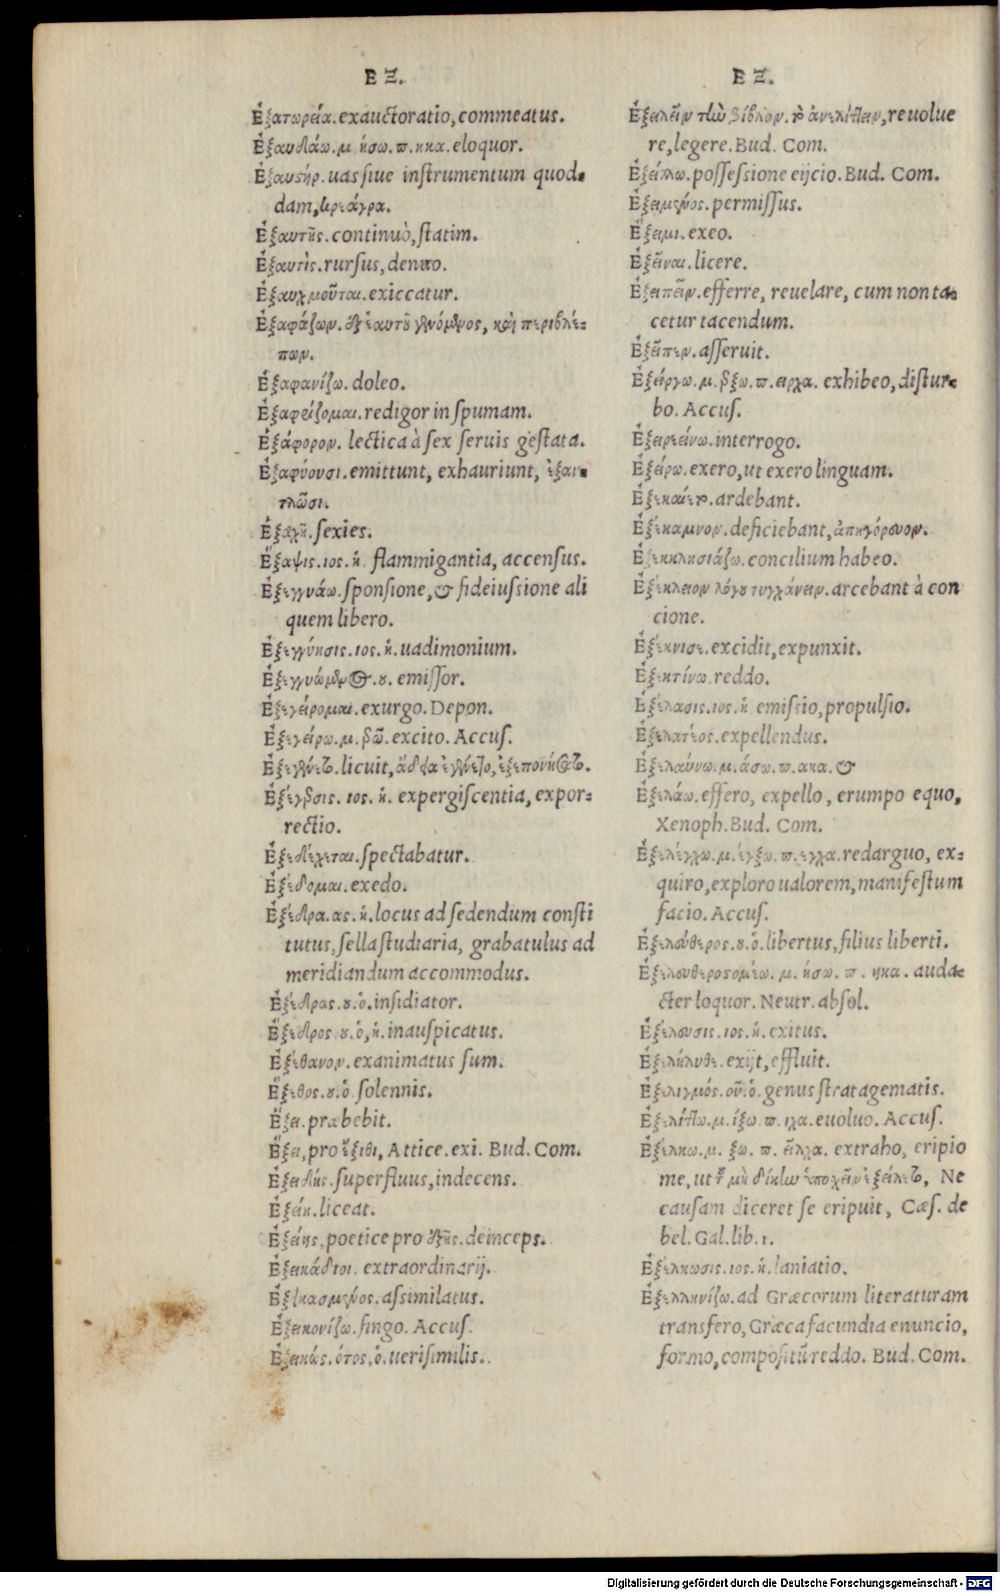 ΕΞ.
Ἐξατωρεία. exauctoratio, commeatus.
Ἐξαυδάω. μ. ήσω. π. ηκα. eloquor.
Ἐξαυστήρ. uas siue instrumentum quod-
dam, κρεάγρα.
Ἐξαυτῆς. continuò, statim.
Ἐξαυτὶς. rursus, denuo.
Ἐξαυχμοῦται. exiccatur.
Ἐξαφάζων. ἐξ ἑαυτοῦ γινόμενος, καὶ περιβλέ-
πων.
Ἐξαφανίζω. doleo.
Ἐξαφρίζομαι. redigor in spumam.
Ἑξάφορον. lectica à sex seruis gestata.
Ἐξαφύουσι. emittunt, exhauriunt, ἐξαν-
τλῶσι.
Ἑξαχῆ. sexies.
Ἔξαψις. ιος. ἡ. flammigantia, accensus.
Ἐξεγγυάω. sponsione, & fideiussione ali
quem libero.
Ἐξεγγύησις. ιος. ἡ. uadimonium.
Ἐξεγγυώμενος. ου. emissor.
Ἐξεγείρομαι. exurgo. Depon.
Ἐξεγείρω. μ. ερῶ. excito. Accus.
Ἐξεγένετο. licuit, ἄδεια ἐγένετο, ἐξεπονήσατο.
Ἐξέγερσις. ιος. ἡ. expergiscentia, expor-
rectio.
Ἐξεδέχεται. spectabatur.
Ἐξέδομαι. exedo.
Ἐξέδρα. ας. ἡ. locus ad sedendum consti
tutus, sella studiaria, grabatulus ad
meridiandum accommodus.
Ἐξέδρας. ου. ὁ. insidiator.
Ἔξεδρος. ου. ὁ, ἡ. inauspicatus.
Ἐξέθανον. exanimatus sum.
Ἔξεθος. ου. ὁ. solennis.
Ἕξει. præbebit.
Ἔξει, pro ἔξιθι, Attice. exi. Bud. Com.
Ἐξειδής. superfluus, indecens.
Ἐξείη. liceat.
Ἑξείης, poetice pro ἑξῆς. deinceps.
Ἐξεικάδιοι. extraordinarij.
Ἐξεικασμένος. assimilatus.
Ἐξεικονίζω. fingo. Accus.
Ἐξεικώς. ότος, ὁ. uerisimilis.
ΕΞ.
Ἐξειλεῖν τὴν βίβλον. τὸ ἀνελίττειν, reuolue
re, legere. Bud. Com.
Ἐξείλλω. possessione eijcio. Bud. Com.
Ἐξειμένος. permissus.
Ἔξειμι. exeo.
Ἐξεῖναι. licere.
Ἐξειπεῖν. efferre, reuelare, cum non ta-
cetur tacendum.
Ἐξεῖπεν. asseruit.
Ἐξείργω. μ. ερξω. π. ειρχα. exhibeo, distur-
bo. Accus.
Ἐξερεείνω. interrogo.
Ἐξείρω. exero, ut exero linguam.
Ἐξεκαίετο. ardebant.
Ἐξέκαμνον. deficiebant, ἀπηγόρευον.
Ἐξεκκλησιάζω. concilium habeo.
Ἐξέκλειον λόγου τυγχάνειν. arcebant à con
cione.
Ἐξέκνισε. excidit, expunxit.
Ἐξεκτίνω. reddo.
Ἐξέλασις. ιος. ἡ. emissio, propulsio.
Ἐξελατέος. expellendus.
Ἐξελαύνω. μ. άσω. π. ακα. &
Ἐξελάω. effero, expello, erumpo equo,
Xenoph. Bud. Com.
Ἐξελέγχω. μ. έγξω. π. εγχα. redarguo, ex-
quiro, exploro ualorem, manifestum
facio. Accus.
Ἐξελεύθερος. ου. ὁ. libertus, filius liberti.
Ἐξελευθεροστομέω. μ. ήσω. π. ηκα. auda-
cter loquor. Neutr. absol.
Ἐξέλευσις. ιος. ἡ. exitus.
Ἐξελήλυθε. exijt, effluit.
Ἐξελιγμός. οῦ. ὁ. genus stratagematis.
Ἐξελίττω. μ. ίξω. π. ιχα. euoluo. Accus.
Ἐξέλκω. μ. ξω. π. εῖλχα. extraho, eripio
me, ut τοῦ μὴ δίκην ὑποχεῖν ἐξείλετο, Ne
causam diceret se eripuit, Cæs. de
bel. Gal. lib. 1.
Ἐξέλκωσις. ιος. ἡ. laniatio.
Ἐξελληνίζω. ad Græcorum literaturam
transfero, Græca facundia enuncio,
formo, compositũ reddo. Bud. Com.
Digitalisierung gefördert durch die Deutsche Forschungsgemeinschaft - DFG